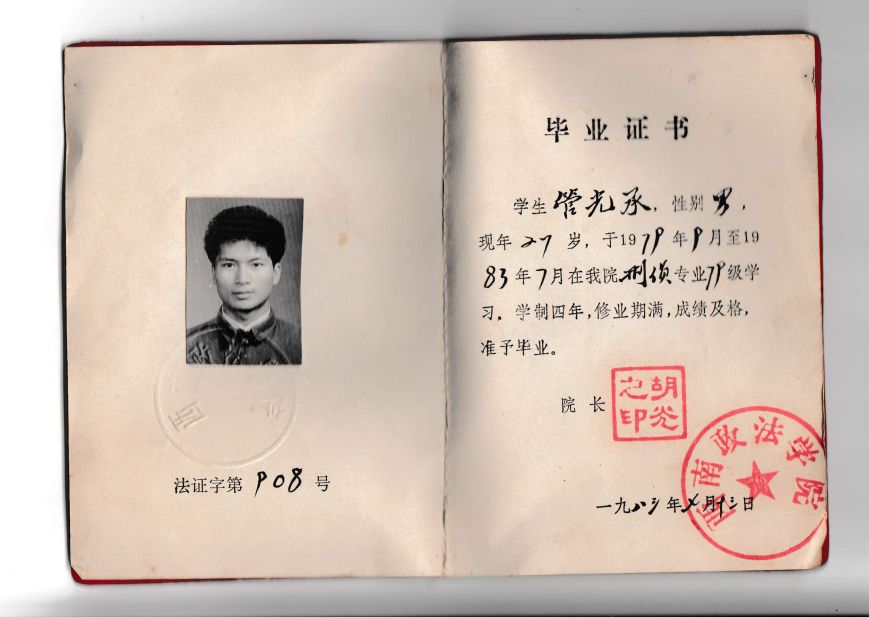 法证字第908号
毕业证书
学生管光承，性别男，
现年27岁，于1979年9月至19
83年7月在我院刑侦专业79级学
习。学制四年，修业期满，成绩及格，
准予毕业。
院长
胡光之印
西南政法学院
一九八三年七月十三日